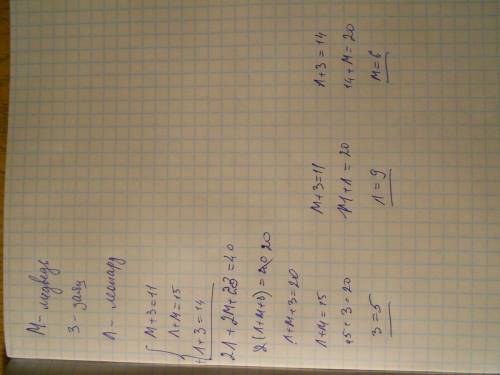 М - медведь
З - заяц
Л - леопард
М+З=11
Л+М=15
+ Л+З=14
2Л+2М+2З=40
2(Л+М+З)=40 20
Л+М+З=20
Л+М=15
15+З=20
З=5
М+З=11
11+Л=20
Л=9
Л+З=14
14+М=20
М=6